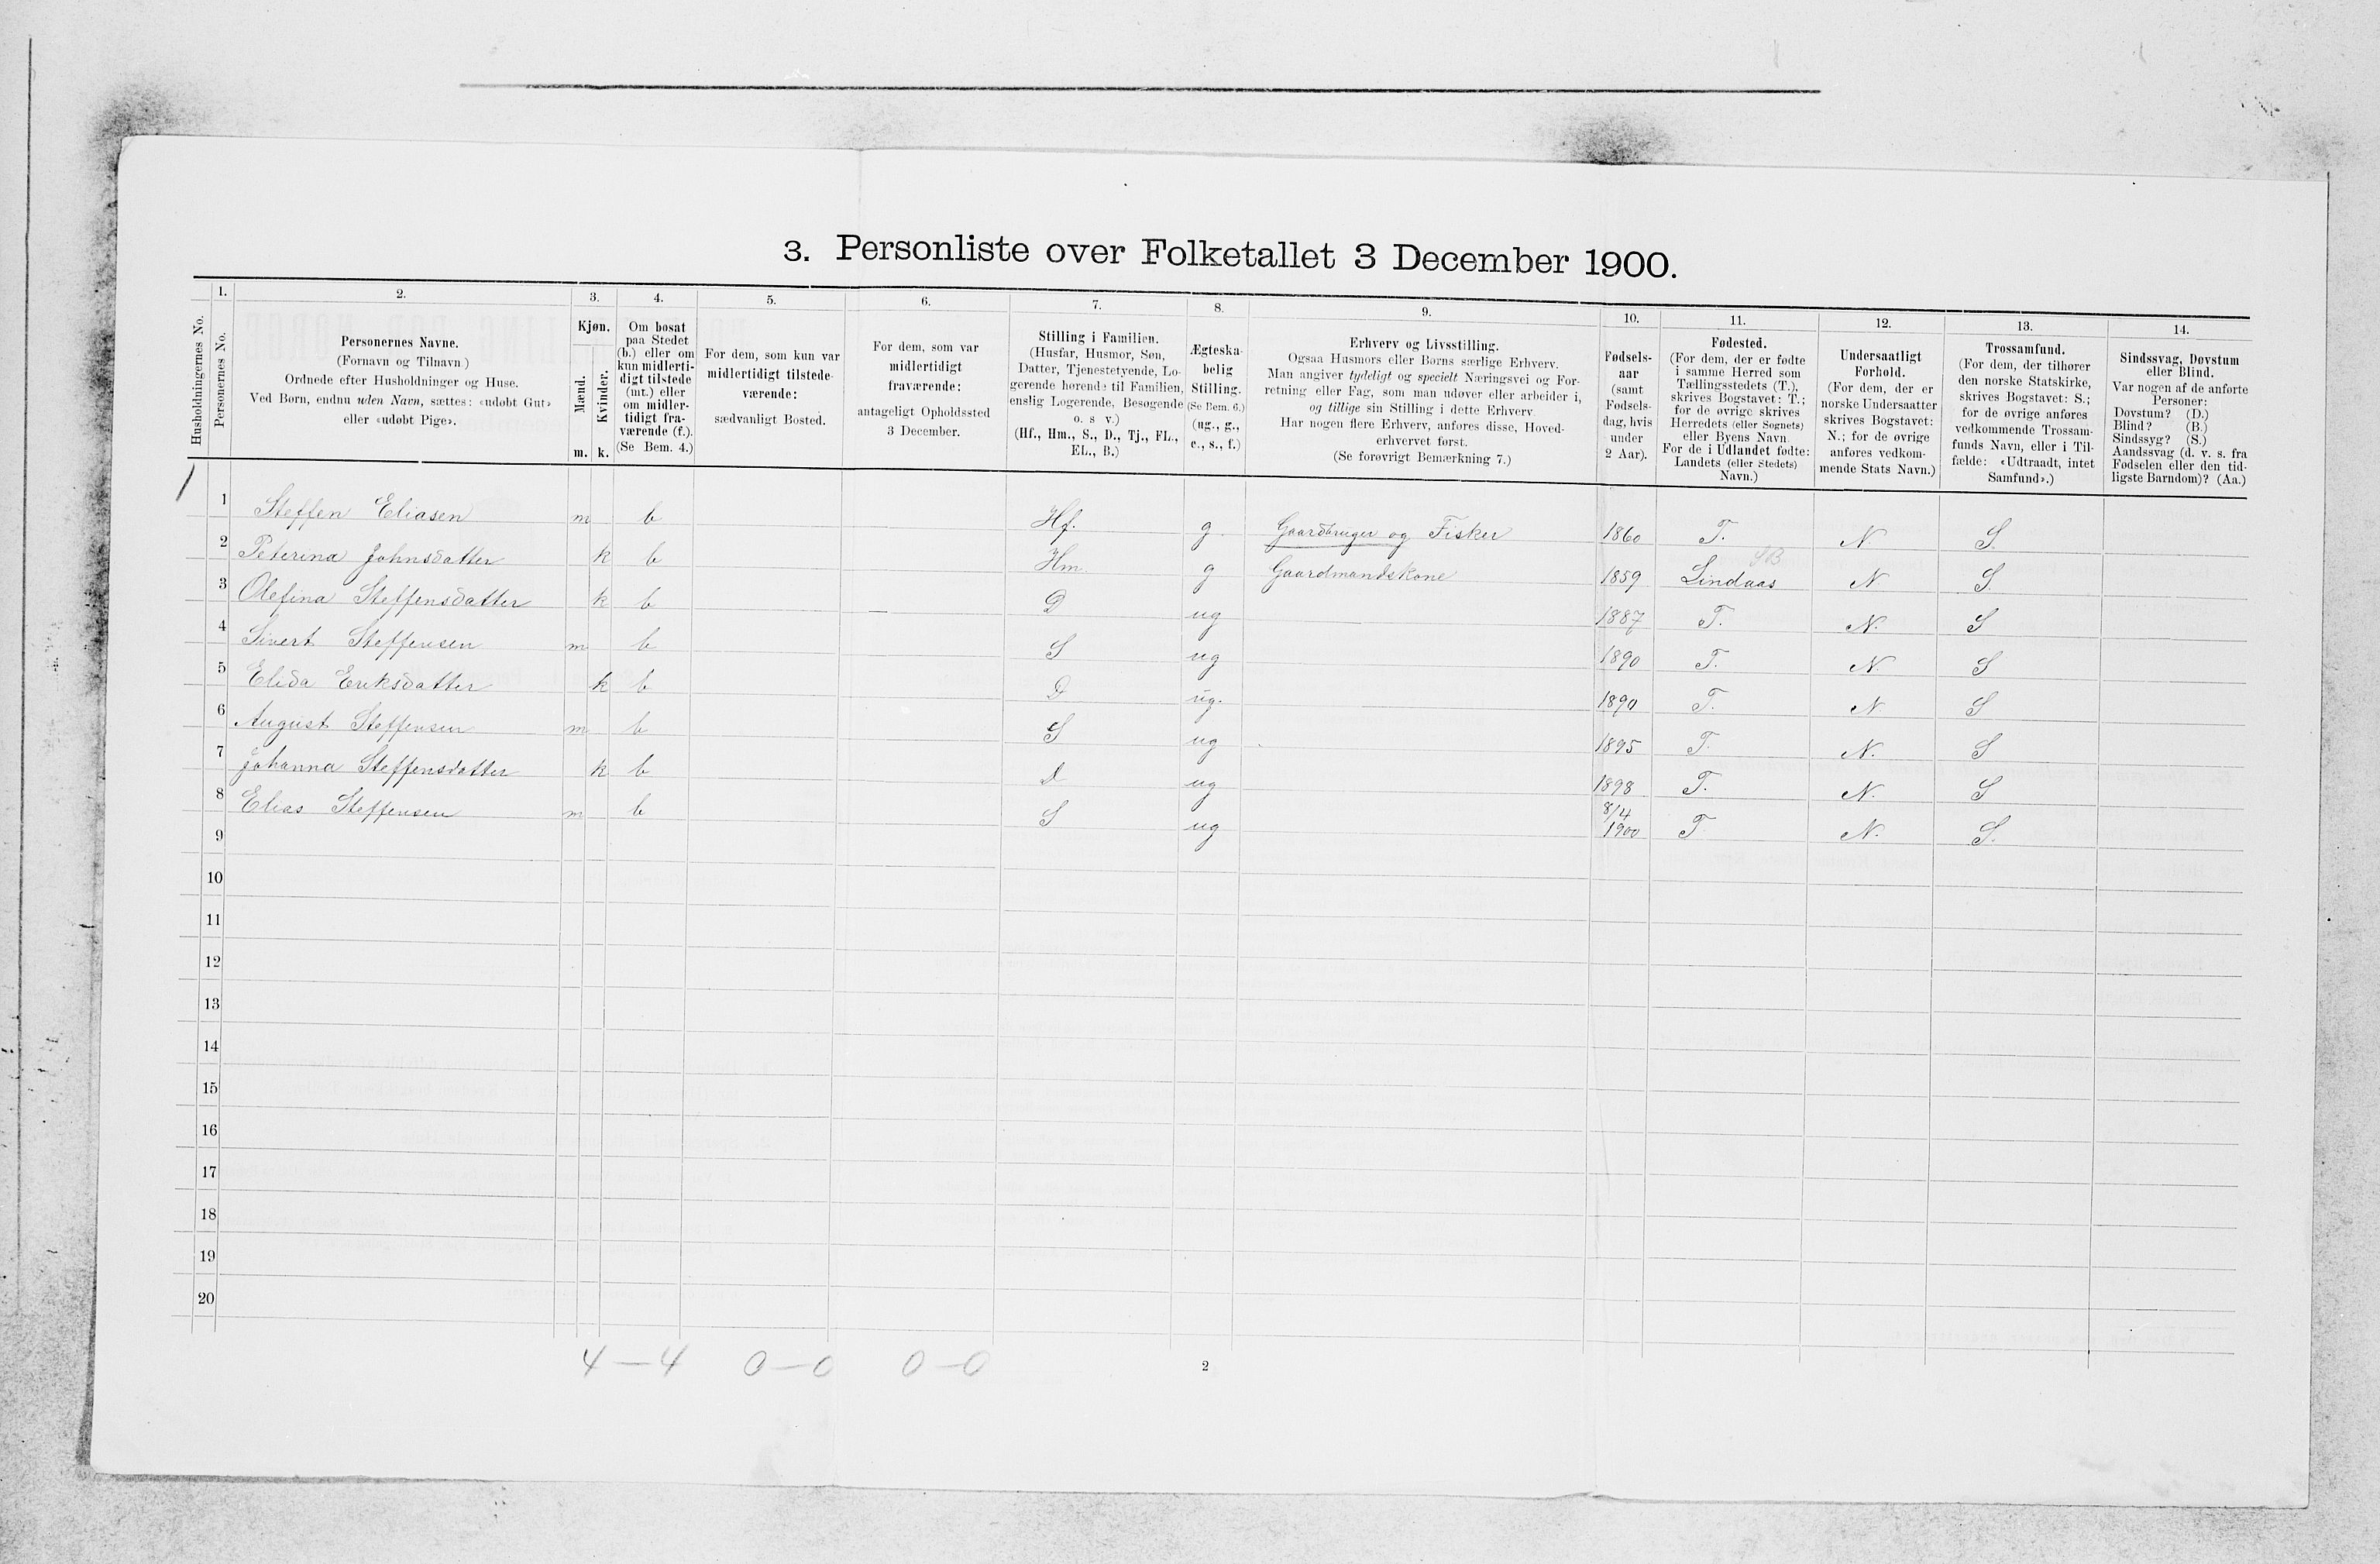 3. Personliste over Folketallet 3 December 1900.
1. 2. 3. 4. 5. 6. 7. 8. 9. 10. 11. 12. 13. 14.
Husholdningernes No.
Personernes No.
Personernes Navne.
(Fornavn og Tilnavn.)
Ordnede efter Husholdninger og Huse.
Ved Børn, endnu uden Navn, sættes: «udøbt Gut»
eller «udøbt Pige».
Kjøn.
Mænd.
Kvinder.
m. k.
Om bosat
paa Stedet
(b.) eller om
kun midlerti-
digt tilstede
(mt.) eller
om midler-
tidigt fra-
værende (f.).
(Se Bem. 4.)
For dem, som kun var
midlertidigt tilstede-
værende:
sædvanligt Bosted.
For dem, som var
midlertidigt
fraværende:
antageligt Opholdssted
3 December.
Stilling i Familien.
(Husfar, Husmor, Søn,
Datter, Tjenestetyende, Lo-
gerende hørende til Familien,
enslig Logerende, Besøgende
o. s v.)
(Hf., Hm., S., D., Tj., FL.,
EL., B.)
Ægteska-
belig
Stilling.
(Se Bem. 6.)
(ug., g.,
e., s., f.)
Erhverv og Livsstilling.
Ogsaa Husmors eller Børns særlige Erhverv.
Man angiver tydeligt og specielt Næringsvei og For-
retning eller Fag, som man udøver eller arbeider i,
og tillige sin Stilling i dette Erhverv.
Har nogen flere Erhverv, anføres disse, Hoved-
erhvervet først.
(Se forøvrigt Bemærkning 7.)
Fødsels-
aar
(samt
Fødsels-
dag, hvis
under
2 Aar).
Fødested.
(For dem, der er fødte
i samme Herred som
Tællingsstedets (T.),
skrives Bogstavet: T.;
for de øvrige skrives
Herredets (eller Sognets)
eller Byens Navn.
For de i Udlandet fødte:
Landets (eller Stedets)
Navn.)
Undersaatligt
Forhold.
(For dem, der er
norske Undersaatter
skrives Bogstavet:
N.; for de øvrige
anføres vedkom-
mende Stats Navn.)
Trossamfund.
(For dem, der tilhører
den norske Statskirke,
skrives Bogstavet: S.;
for de øvrige anføres
vedkommende Trossam-
funds Navn, eller i Til-
fælde: «Udtraadt, intet
Samfund».)
Sindssvag, Døvstum
eller Blind.
Var nogen af de anførte
Personer:
Døvstum? (D.)
Blind? (B.)
Sindssyg? (S.)
Aandssvag (d. v. s. fra
Fødselen eller den tid-
ligste Barndom)? (Aa.)
1 1 Steffen Eliasen m b Hf. g. Gaardbruger og Fisker 1860 T. N S.
2 Peterina Johnsdatter k b Hm. g Gaardmandskone 1859 Lindaas N S.
3 Olefina Steffensdatter k b D ug 1887 T. N. S
4 Sivert Steffensen m b S ug 1890 T. N. S
5 Elida Eriksdatter k b D ug. 1890 T. N. S
6 August Steffensen m b S ug 1895 T. N. S
7 Johanna Steffensdatter k b D ug 1898 T. N. S
8 Elias Steffensen m b S ug 8/4 1900 T N. S.
9
10
11
12
13
14
15
16
17
18
19
20
4 — 4 0 — 0 0 — 0
2